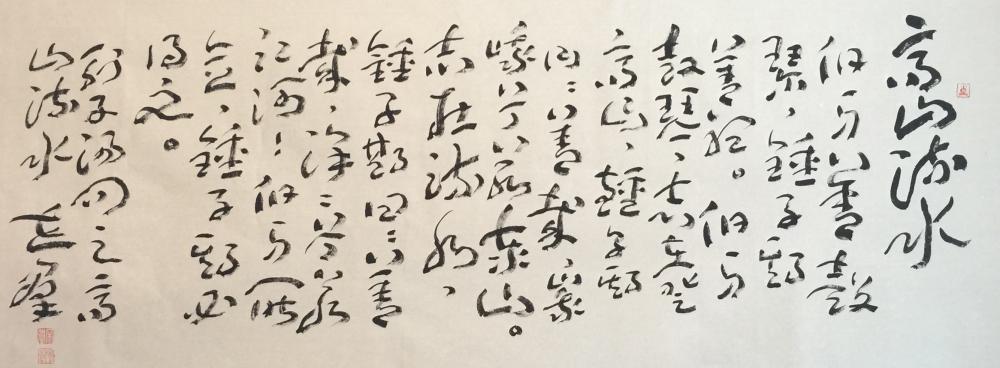 高山流水
伯牙善鼓
琴，鍾子期
善聽。伯牙
鼓琴，志在登
高山，鍾子期
曰：善哉，峩
峩兮若泰山。
志在流水，
鍾子期曰：善
哉，洋洋兮若
江河！伯牙所
念，鍾子期必
得之。
列子湯問之高
山流水